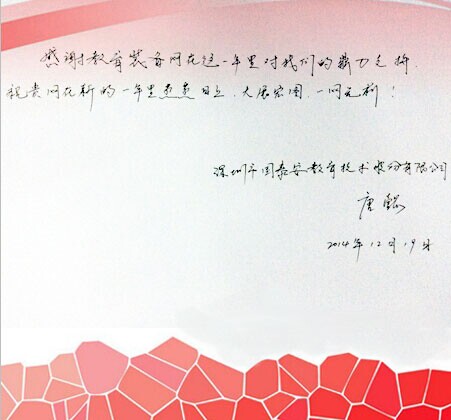 感谢教育装备网在这一年里对我们的鼎力支持
祝贵网在新的一年里蒸蒸日上，大展宏图，一切元利！
深圳市国泰安教育技术股份有限公司
唐
2014年12月19日